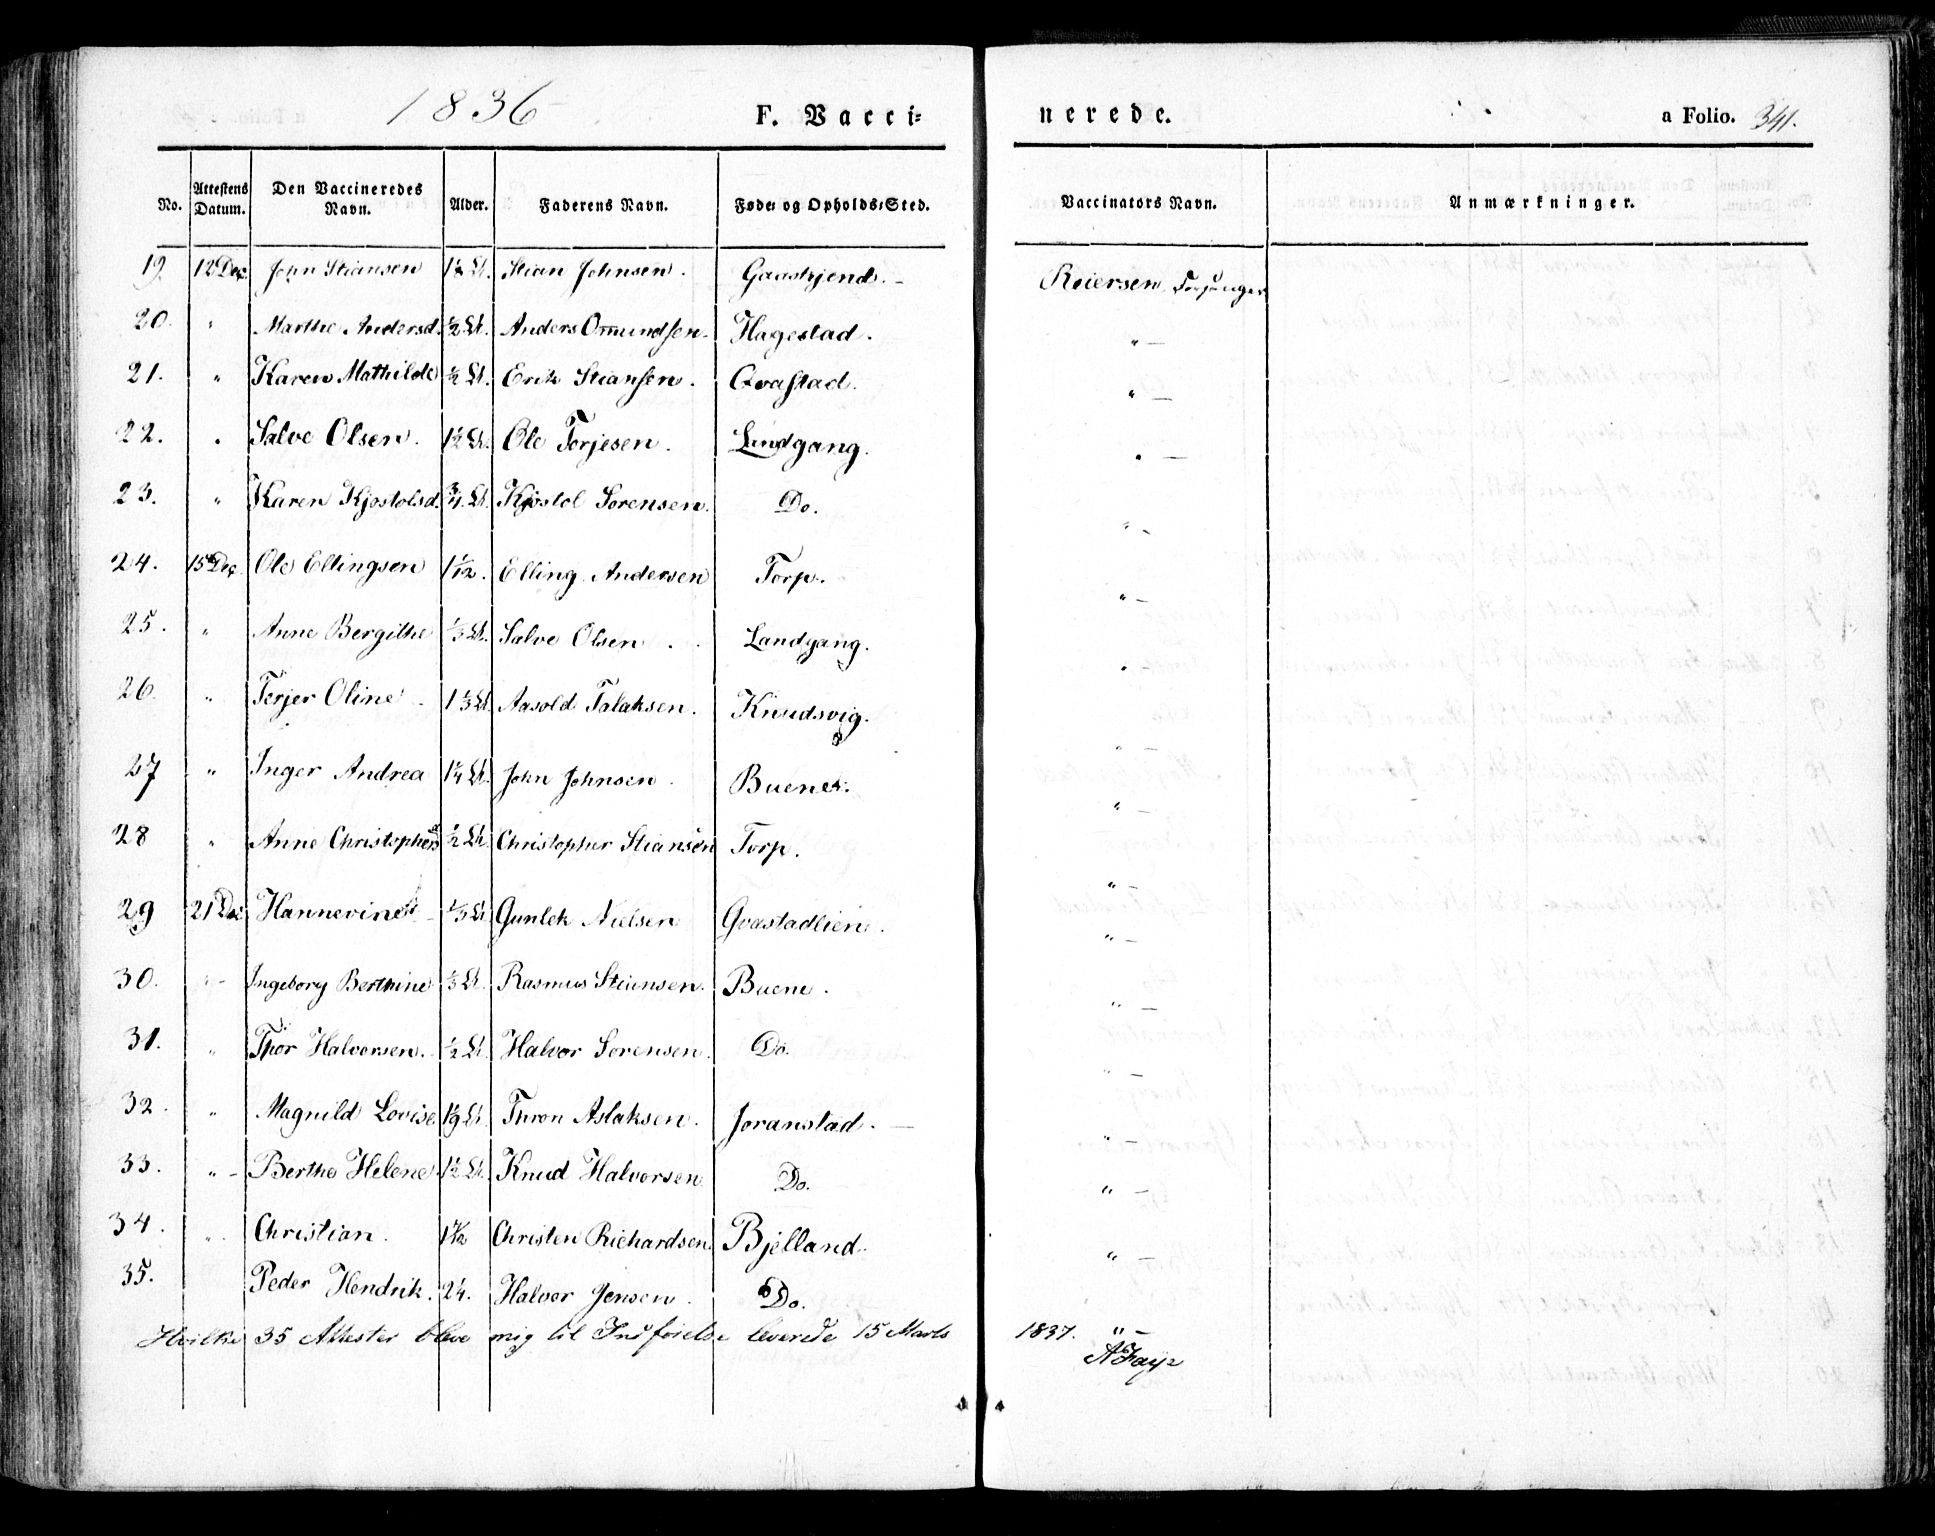 1836 F. Vacci- nerede. a Folio. 341.
No. Attestens Datum. Den Vaccineredes Navn. Alder. Faderens Navn. Føde- og Opholds-Sted. Vaccinators Navn. Anmærkninger.
19. 12 Dec John Stiansen 1½ Stian Johnsen. Reiersen
20. " Marthe Andersd. ½ Anders Omundsen. Hagestad. " —
21. " Karen Mathilde ½ Erik Stiansen. Qvastad. " —
22. " Salve Olsen. 1½ Ole Torjesen. Landgang. " —
23. " Karen Kjøstolsd. ¾ Kjøstol Sørensen. Do. " -
24. 15 Dec Ole Ellingsen 1 1/12. Elling Andersen Torp. " —
25. " Anne Bergithe ⅓ Salve Olsen. Landgang. " —
26. " Terjer Oline 1⅓ Aasold Talaksen. Knudsvig. " —
27 " Inger Andrea 1¼ John Johnsen. Buene. " —
28 " Anne Christophersd ½ Christopher Stiansen Torp. " —
29 21 Dec Hannevine ⅓ Gunlek Nielsen Qvastadlien. " —
30. " - Ingeborg Berthine Rasmus Stiansen. Buene. " —
31. " Thor Halvorsen. ½ Halvor Sørensen. Do. " —
32. " Magnild Lovise Thron Aslaksen. Joranstad. — " —
33. " - Berthe Helene 1½ Knud Halvorsen Do. " —
34. " Christian. Christen Richardsen. Bjelland. " —
35. Peder Hendrik. 2¼. Halvor Jensen. Do. " —
Hvilke 35 Attester bleve mig til Indførelse leverede 15 Marts 1837.